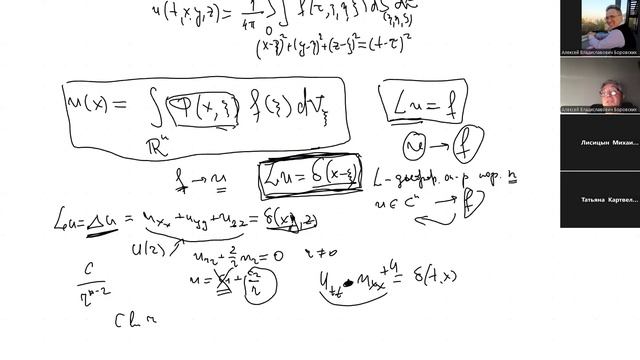 u(t,x,y,z) = 1/4π ∫∫ f(τ,ξ,η,ζ) dS dτ
0 (ξ,η,ζ)
(x-ξ)²+(y-η)²+(z-ζ)²=(t-τ)²
u(x) = ∫ P(x,ξ) f(ξ) dV_ξ
ℝⁿ
Lu = f
u → f
f → u
Lu = δ(x-ξ)
L - дифф. оп-р пор. n
u ∈ Cⁿ → f
Lu = Δu = u_xx + u_yy + u_zz = δ(x,y,z)
U(r)
u_rr + 2/r u_r = 0 r ≠ 0
C/r^(n-2)
u = C₁ + C₂/r
u_tt - u_xx + u = δ(t,x)
C ln r
Алексей Владиславович Боровских
Алексей Владиславович Боровских
Лисицын Михаи...
Татьяна Картвел...